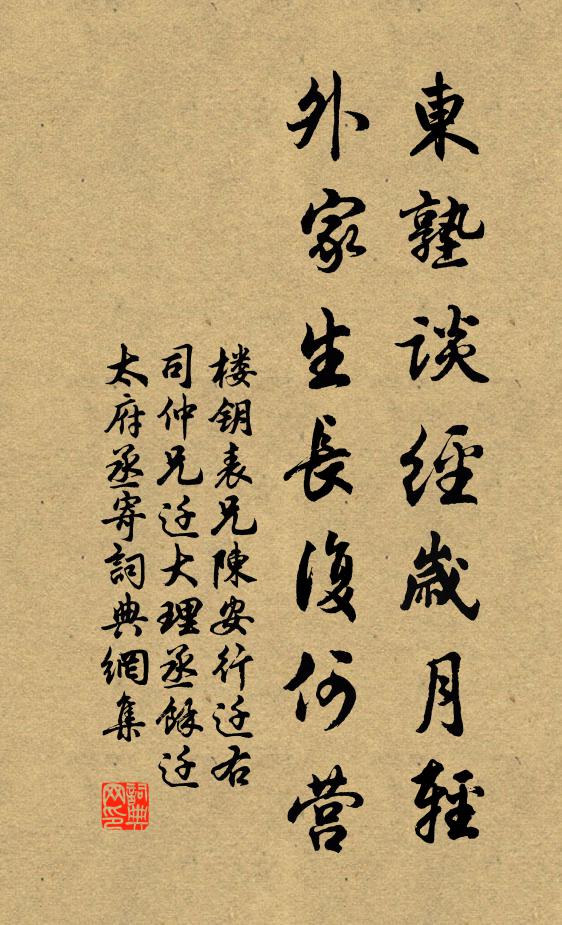 東塾談經歲月輕
外家生長復何营
楼钥表兄陳安行迁右
司仲兄迁大理丞餘迁
太府丞寄詞典網集
詞典网印